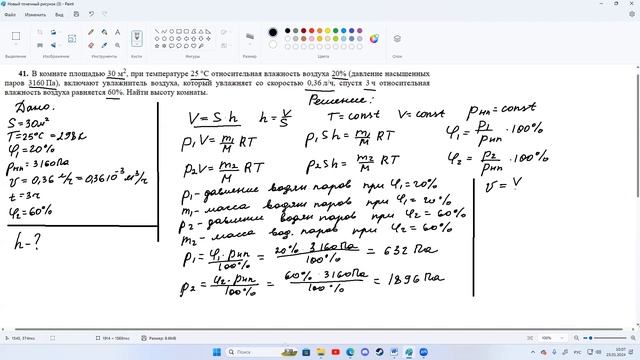 Новый точечный рисунок (3) - Paint
Файл Изменить Вид
Выделение Изображение Инструменты Кисти Фигуры Цвета Слои
41. В комнате площадью 30 м², при температуре 25 °С относительная влажность воздуха 20% (давление насыщенных
паров 3160 Па), включают увлажнитель воздуха, который увлажняет со скоростью 0,36 л/ч, спустя 3 ч относительная
влажность воздуха равняется 60%. Найти высоту комнаты.
Дано:
S = 30м²
T = 25°C = 298K
φ₁ = 20%
pнп = 3160Па
v = 0,36 л/ч = 0,36·10⁻³ м³/ч
t = 3ч
φ₂ = 60%
h - ?
Решение:
V = S h h = V/S T = const V = const pнп = const
p₁V = m₁/M RT p₁Sh = m₁/M RT
p₂V = m₂/M RT p₂Sh = m₂/M RT
φ₁ = p₁/pнп · 100%
φ₂ = p₂/pнп · 100%
v = V
p₁ - давление водян паров при φ₁ = 20%
m₁ - масса водяны паров при φ₁ = 20%
p₂ - давление водян паров при φ₂ = 60%
m₂ - масса вод. паров при φ₂ = 60%
p₁ = φ₁·pнп/100% = 20%·3160Па/100% = 632 Па
p₂ = φ₂·pнп/100% = 60%·3160Па/100% = 1896 Па
1540, 374пкс 1914 × 1588пкс Размер: 8.6МБ 100%
Поиск РУС 10:07
23.01.2024